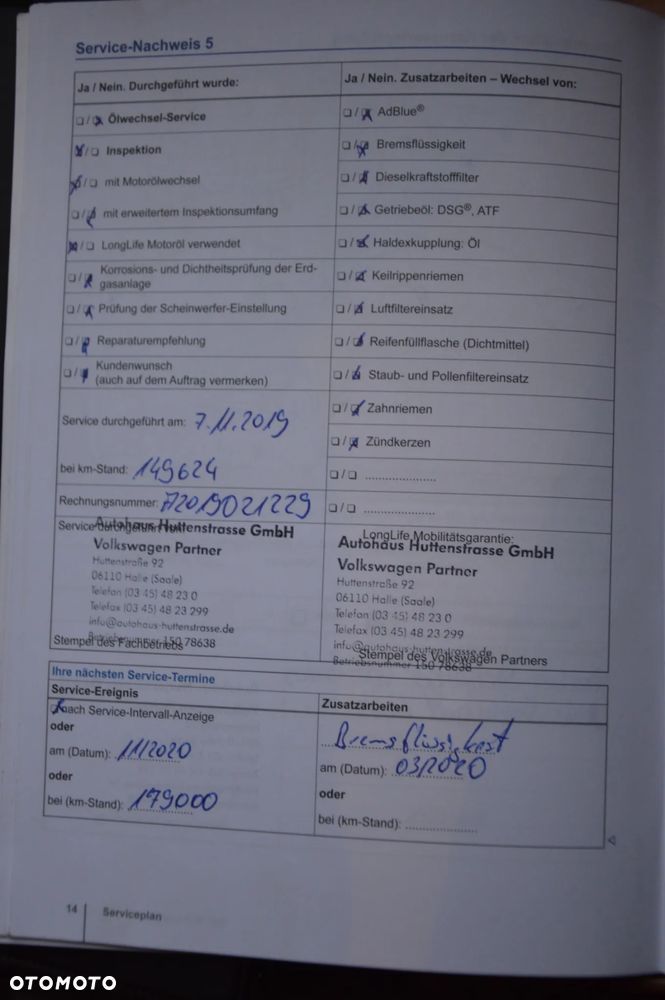 Service-Nachweis 5
Ja / Nein. Durchgeführt wurde:
❏ / ❏ Ölwechsel-Service
❏ / ❏ Inspektion
❏ / ❏ mit Motorölwechsel
❏ / ❏ mit erweitertem Inspektionsumfang
❏ / ❏ LongLife Motoröl verwendet
❏ / ❏ Korrosions- und Dichtheitsprüfung der Erd-
gasanlage
❏ / ❏ Prüfung der Scheinwerfer-Einstellung
❏ / ❏ Reparaturempfehlung
❏ / ❏ Kundenwunsch
(auch auf dem Auftrag vermerken)
Service durchgeführt am: 7.11.2019
bei km-Stand: 149624
Rechnungsnummer: A2019021229
Service durchgeführt
Autohaus Huttenstrasse GmbH
Volkswagen Partner
Huttenstraße 92
06110 Halle (Saale)
Telefon (03 45) 48 23 0
Telefax (03 45) 48 23 299
info@autohaus-huttenstrasse.de
Betriebsnummer 150 78638
Stempel des Fachbetriebs
Ja / Nein. Zusatzarbeiten – Wechsel von:
❏ / ❏ AdBlue®
❏ / ❏ Bremsflüssigkeit
❏ / ❏ Dieselkraftstofffilter
❏ / ❏ Getriebeöl: DSG®, ATF
❏ / ❏ Haldexkupplung: Öl
❏ / ❏ Keilrippenriemen
❏ / ❏ Luftfiltereinsatz
❏ / ❏ Reifenfüllflasche (Dichtmittel)
❏ / ❏ Staub- und Pollenfiltereinsatz
❏ / ❏ Zahnriemen
❏ / ❏ Zündkerzen
❏ / ❏ .....................
❏ / ❏ .....................
LongLife Mobilitätsgarantie:
Autohaus Huttenstrasse GmbH
Volkswagen Partner
Huttenstraße 92
06110 Halle (Saale)
Telefon (03 45) 48 23 0
Telefax (03 45) 48 23 299
info@autohaus-huttenstrasse.de
Betriebsnummer 150 78638
Stempel des Volkswagen Partners
Ihre nächsten Service-Termine
Service-Ereignis
nach Service-Intervall-Anzeige
oder
am (Datum): 11/2020
oder
bei (km-Stand): 179000
Zusatzarbeiten
Bremsflüssigkeit
am (Datum): 03/2020
oder
bei (km-Stand): .....................
14 Serviceplan
OTOMOTO